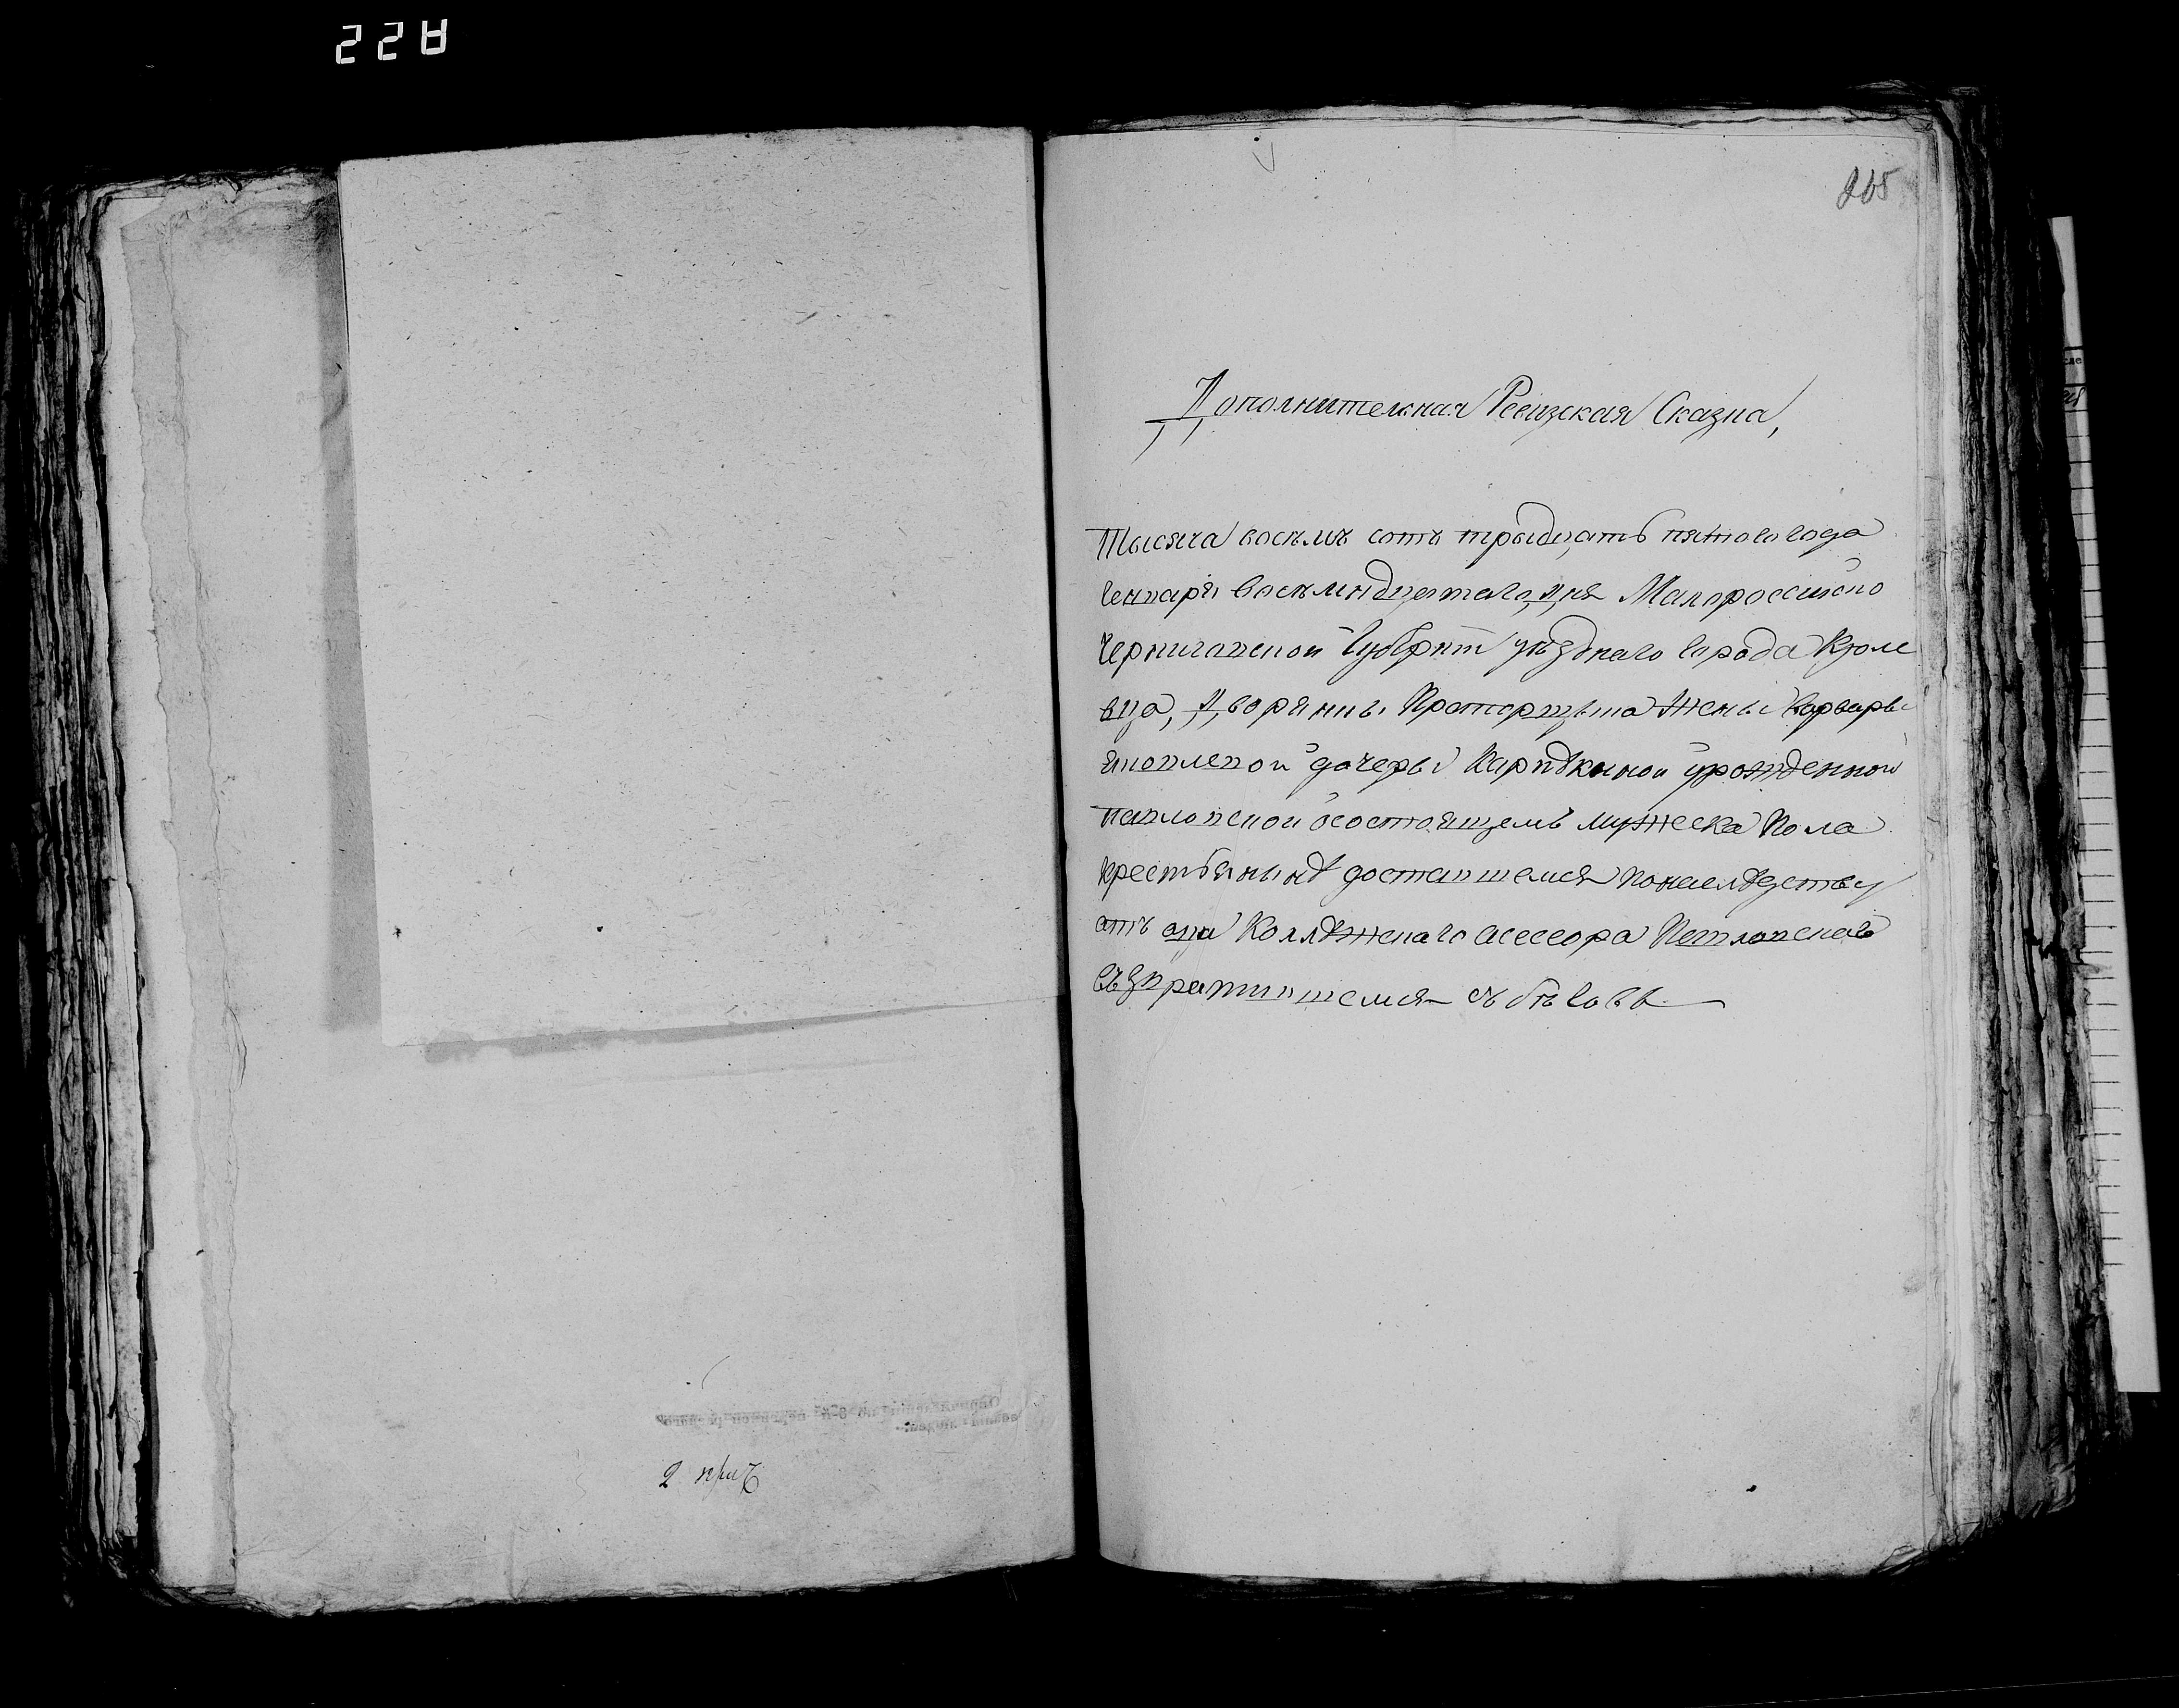 228
265
Дополнительная Ревизская Сказка,
Тысяча восемъ сотъ трыдцать пятого года
Генваря восемнадцятого дня Малороссийско
Черниговской Губернии уѣздного города Кроле
вца, Дворянина жены Варвары
Яковлевой дочеры урожденной
Павловской о состоящемъ мужеска пола
крестьянинѣ доставшемся по наслѣдству
отъ отца Коллѣжского асессора Павловского
възвратившемся съ бѣговъ
2